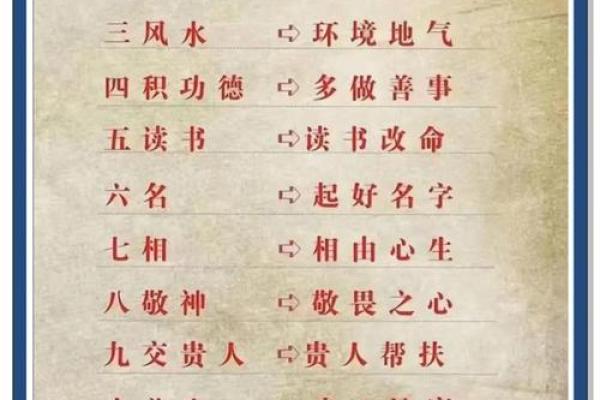 三风水 ⇨ 环境地气
四积功德 ⇨ 多做善事
五读书 ⇨ 读书改命
六名 ⇨ 起好名字
七相 ⇨ 相由心生
八敬神 ⇨ 敬畏之心
九交贵人 ⇨ 贵人帮扶